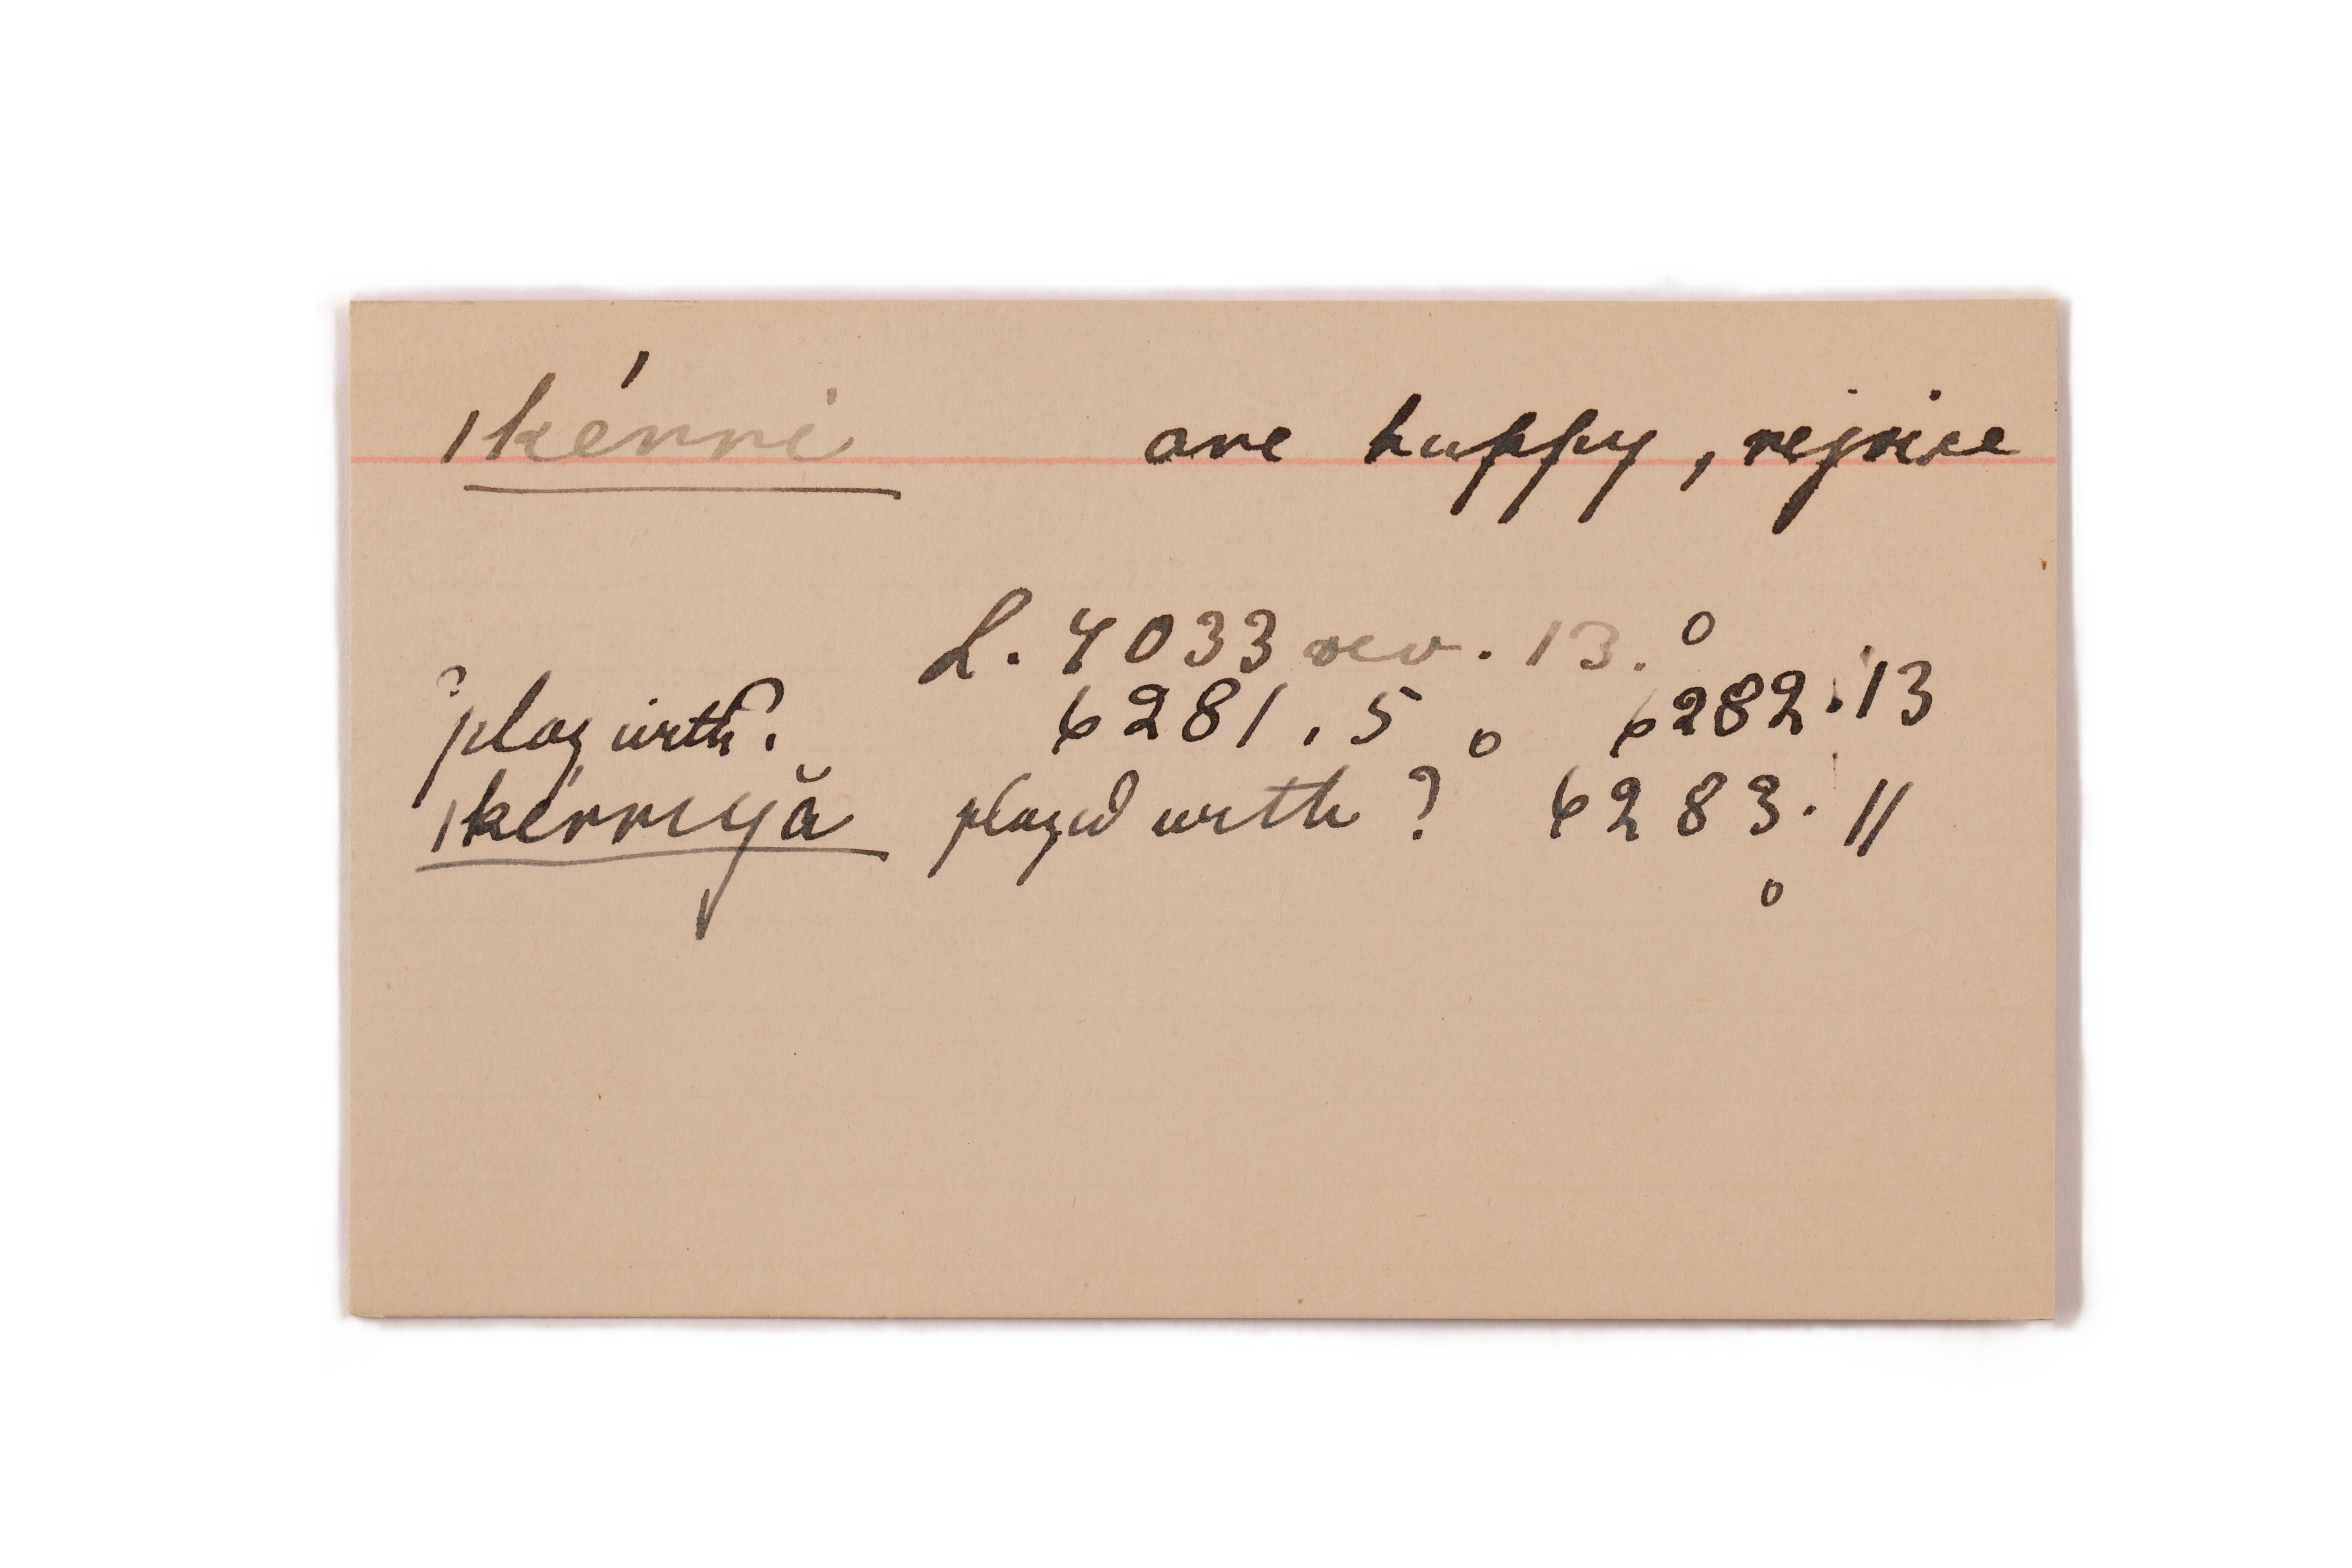 ikénni are happy, rejoice
L. 4033 rev. 13. o
? play with? 6281. 5 o 6282. 13
ikénniyă played with? 6283. 11
o